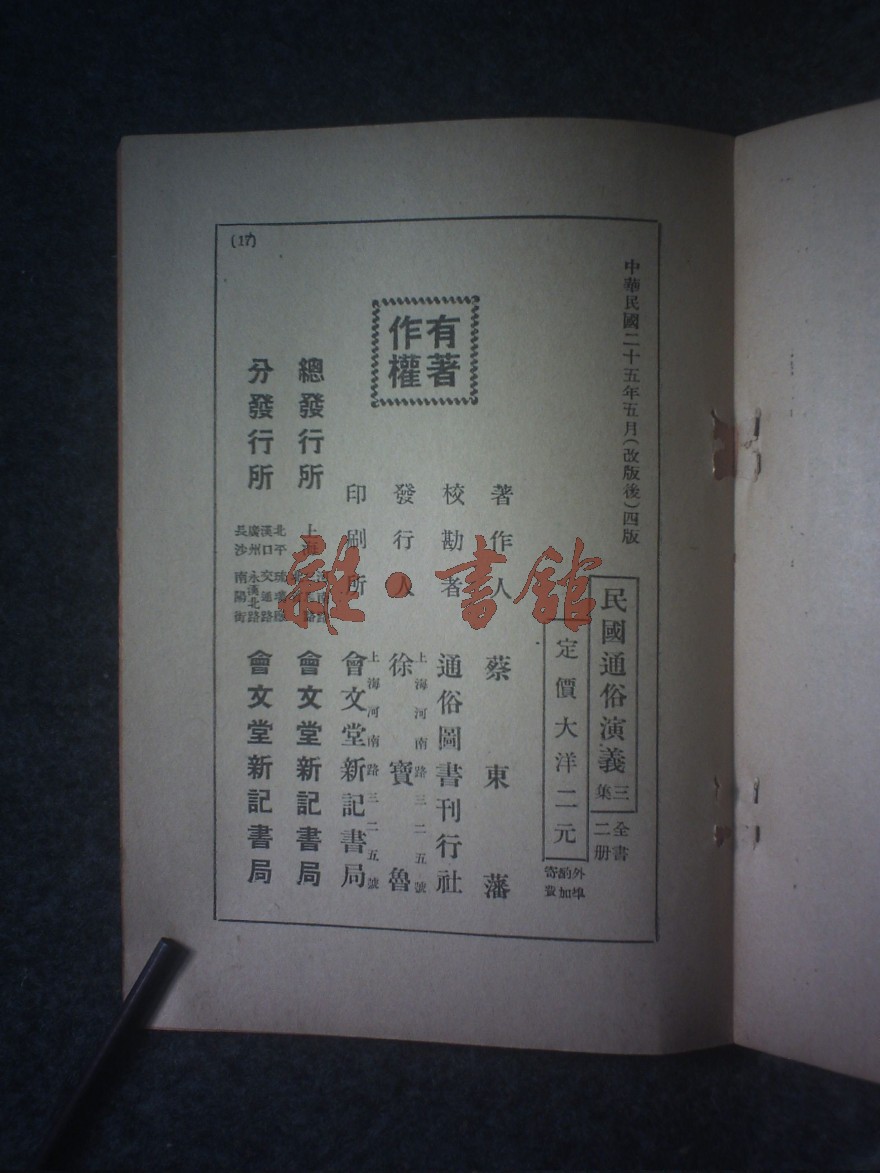 中華民國二十五年五月（改版後）四版
民國通俗演義 三集 全書二册
定價大洋二元
外埠酌加寄費
著作人 蔡東藩
校勘者 通俗圖書刊行社
發行人 徐寶魯
上海河南路三二五號
印刷所 會文堂新記書局
上海河南路三二五號
有著作權
總發行所 上海 會文堂新記書局
分發行所 會文堂新記書局
北平
漢口 交通路
廣州 永漢北路
長沙 南陽街
(17)
雜·書館